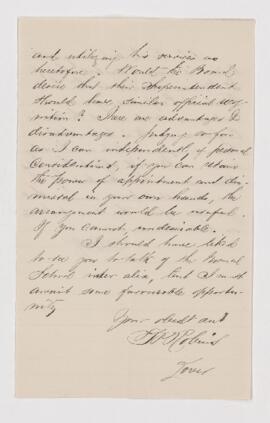 and utilizing his services as
heretofore? Would the Board
desire that their Superintendent
should have similar official recog-
nition? There are advantages &
disadvantages. Judging so far
as I can independently of personal
considerations, if you can retain
the power of appointment and dis-
missal in your own hands, the
arrangement would be useful.
If you cannot, undesirable.
I should have liked
to see you to talk of the Normal
School inter alia, but I must
await some favourable opportu-
nity
Your obedt servt
Robins